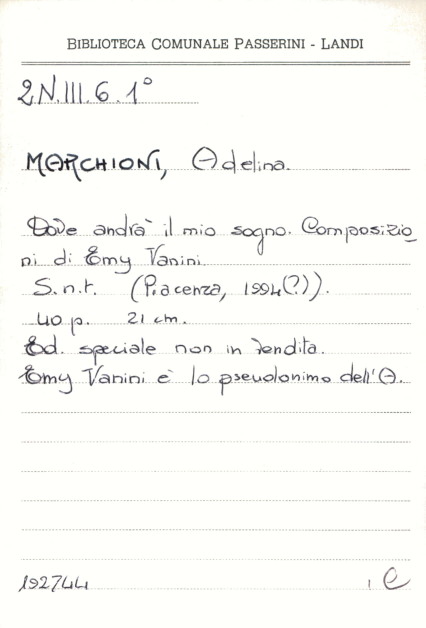 BIBLIOTECA COMUNALE PASSERINI - LANDI
2N.III.6.1°
MARCHIONI, Adelina.
Dove andrà il mio sogno. Composizio
ni di Emy Vanini.
S.n.t. (Piacenza, 1994(?)).
40 p. 21 cm.
Ed. speciale non in vendita.
Emy Vanini è lo pseudonimo dell'A.
192744